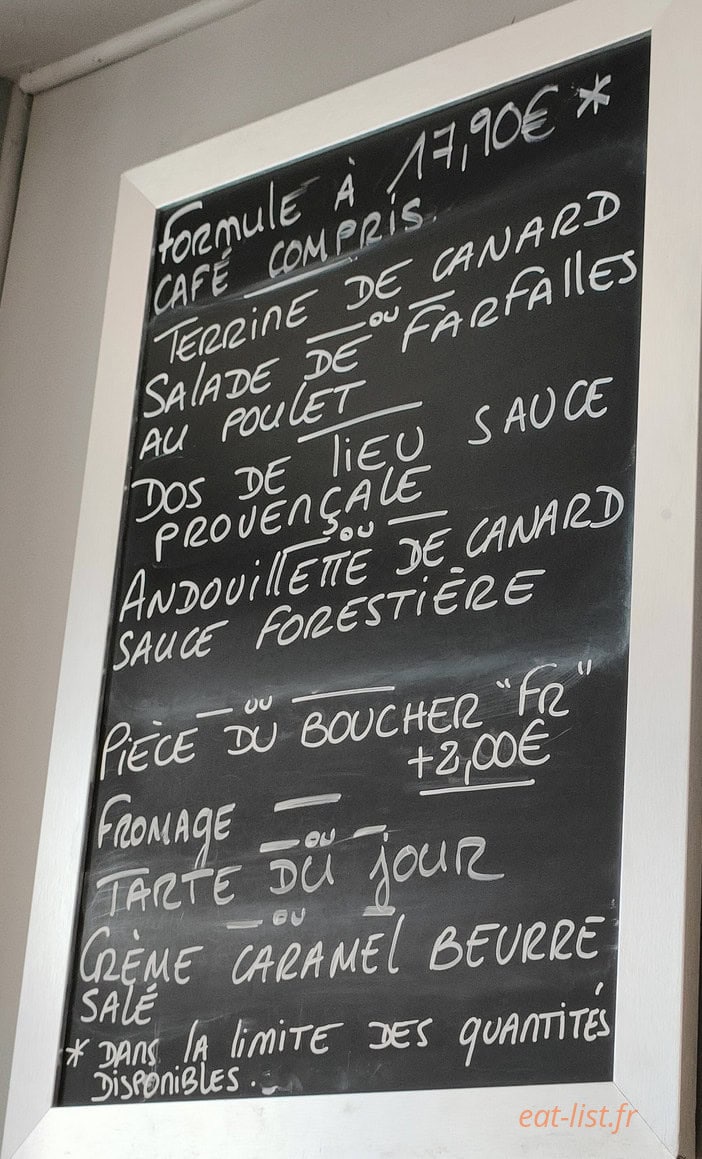 FORMULE À 17,90€ *
CAFÉ COMPRIS.
TERRINE DE CANARD
ou
SALADE DE FARFALLES
AU POULET
DOS DE LIEU SAUCE
PROVENÇALE
ou
ANDOUILLETTE DE CANARD
SAUCE FORESTIÈRE
ou
PIÈCE DU BOUCHER "FR"
+2,00€
FROMAGE
ou
TARTE DU JOUR
ou
CRÈME CARAMEL BEURRE
SALÉ
* DANS LA LIMITE DES QUANTITÉS
DISPONIBLES.
eat-list.fr